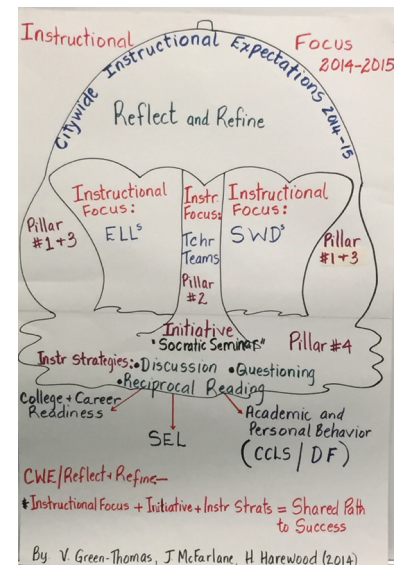 Instructional Focus
2014-2015
Citywide Instructional Expectations 2014-15
Reflect and Refine
Instructional
Focus:
ELLs
Instr
Focus:
Tchr
Teams
Pillar
#2
Instructional
Focus:
SWDs
Pillar
#1+3
Pillar
#1+3
Initiative
"Socratic Seminars"
Pillar #4
Instr Strategies: •Discussion •Questioning
•Reciprocal Reading
College + Career
Readiness
SEL
Academic and
Personal Behavior
(CCLS / DF)
CWE/Reflect + Refine—
*Instructional Focus + Initiative + Instr Strats = Shared Path
to Success
By V. Green-Thomas, J McFarlane, H. Harewood (2014)